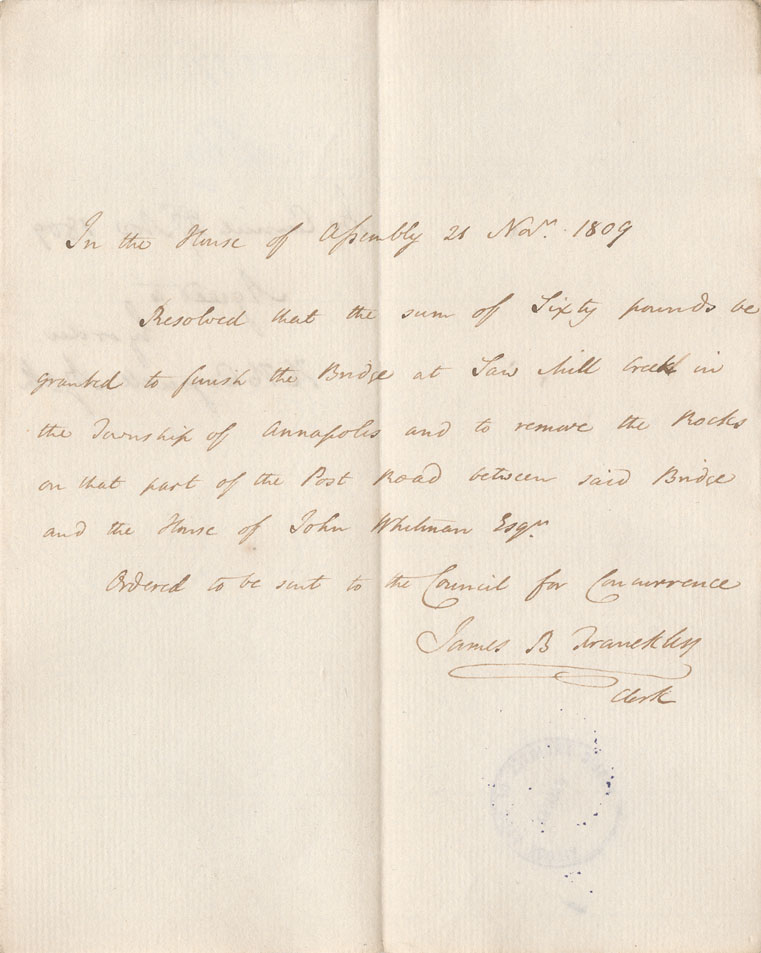 In the House of Assembly 21 Novr. 1809
Resolved that the sum of Sixty pounds be
granted to finish the Bridge at Saw Mill Creek in
the Township of Annapolis and to remove the Rocks
on that part of the Post Road between said Bridge
and the House of John Whitman Esqr.
Ordered to be sent to the Council for Concurrence
James B Franckleyn
Clerk